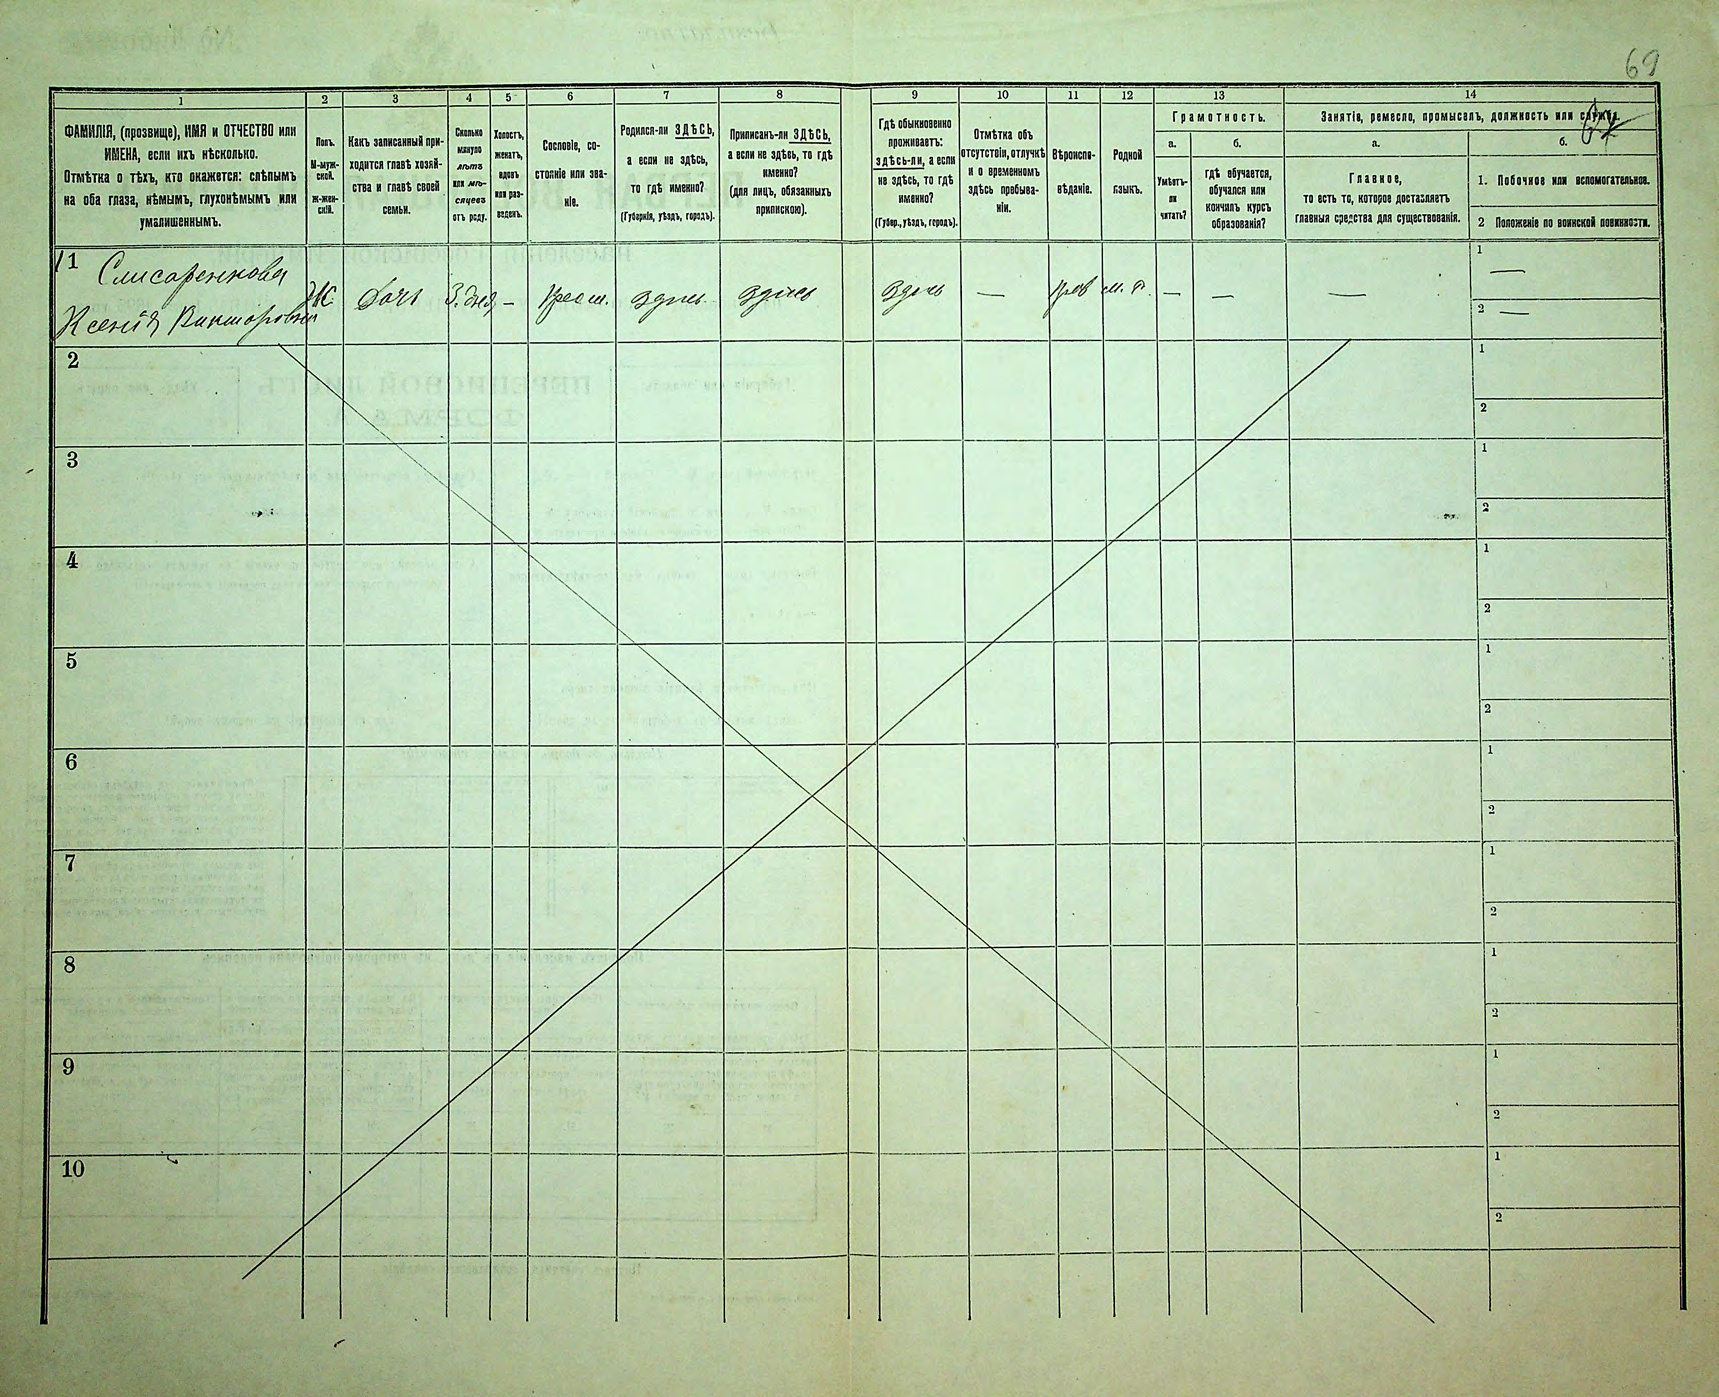 69
67
1
2
3
4
5
6
7
8
9
10
11
12
13
14
ФАМИЛІЯ, (прозвище), ИМЯ и ОТЧЕСТВО или
ИМЕНА, если ихъ нѣсколько.
Отмѣтка о тѣхъ, кто окажется: слѣпымъ
на оба глаза, нѣмымъ, глухонѣмымъ или
умалишеннымъ.
Полъ.
М-муж-
ской.
ж-жен-
скій.
Какъ записанный при-
ходится главѣ хозяй-
ства и главѣ своей
семьи.
Сколько
минуло
лѣтъ
или мѣ-
сяцевъ
отъ роду.
Холостъ,
женатъ,
вдовъ
или раз-
веденъ.
Сословіе, со-
стояніе или зва-
ніе.
Родился-ли ЗДѢСЬ,
а если не здѣсь,
то гдѣ именно?
(Губернія, уѣздъ, городъ).
Приписанъ-ли ЗДѢСЬ,
а если не здѣсь, то гдѣ
именно?
(для лицъ, обязанныхъ
припискою).
Гдѣ обыкновенно
проживаетъ:
здѣсь-ли, а если
не здѣсь, то гдѣ
именно?
(Губер., уѣздъ, городъ).
Отмѣтка объ
отсутствіи, отлучкѣ
и о временномъ
здѣсь пребыва-
ніи.
Вѣроиспо-
вѣданіе.
Родной
языкъ.
Грамотность.
а.
Умѣетъ-
ли
читать?
б.
гдѣ обучается,
обучался или
кончилъ курсъ
образованія?
Занятіе, ремесло, промыселъ, должность или служба.
а.
Главное,
то есть то, которое доставляетъ
главныя средства для существованія.
б.
1. Побочное или вспомогательное.
2 Положеніе по воинской повинности.
1
Слисаренкова
Ксенія Викторовна
Ж
дочь
3. дня
—
крест.
здѣсь
здѣсь
здѣсь
—
прав
м. р.
—
—
—
1 —
2 —
2
1
2
3
1
2
4
1
2
5
1
2
6
1
2
7
1
2
8
1
2
9
1
2
10
1
2